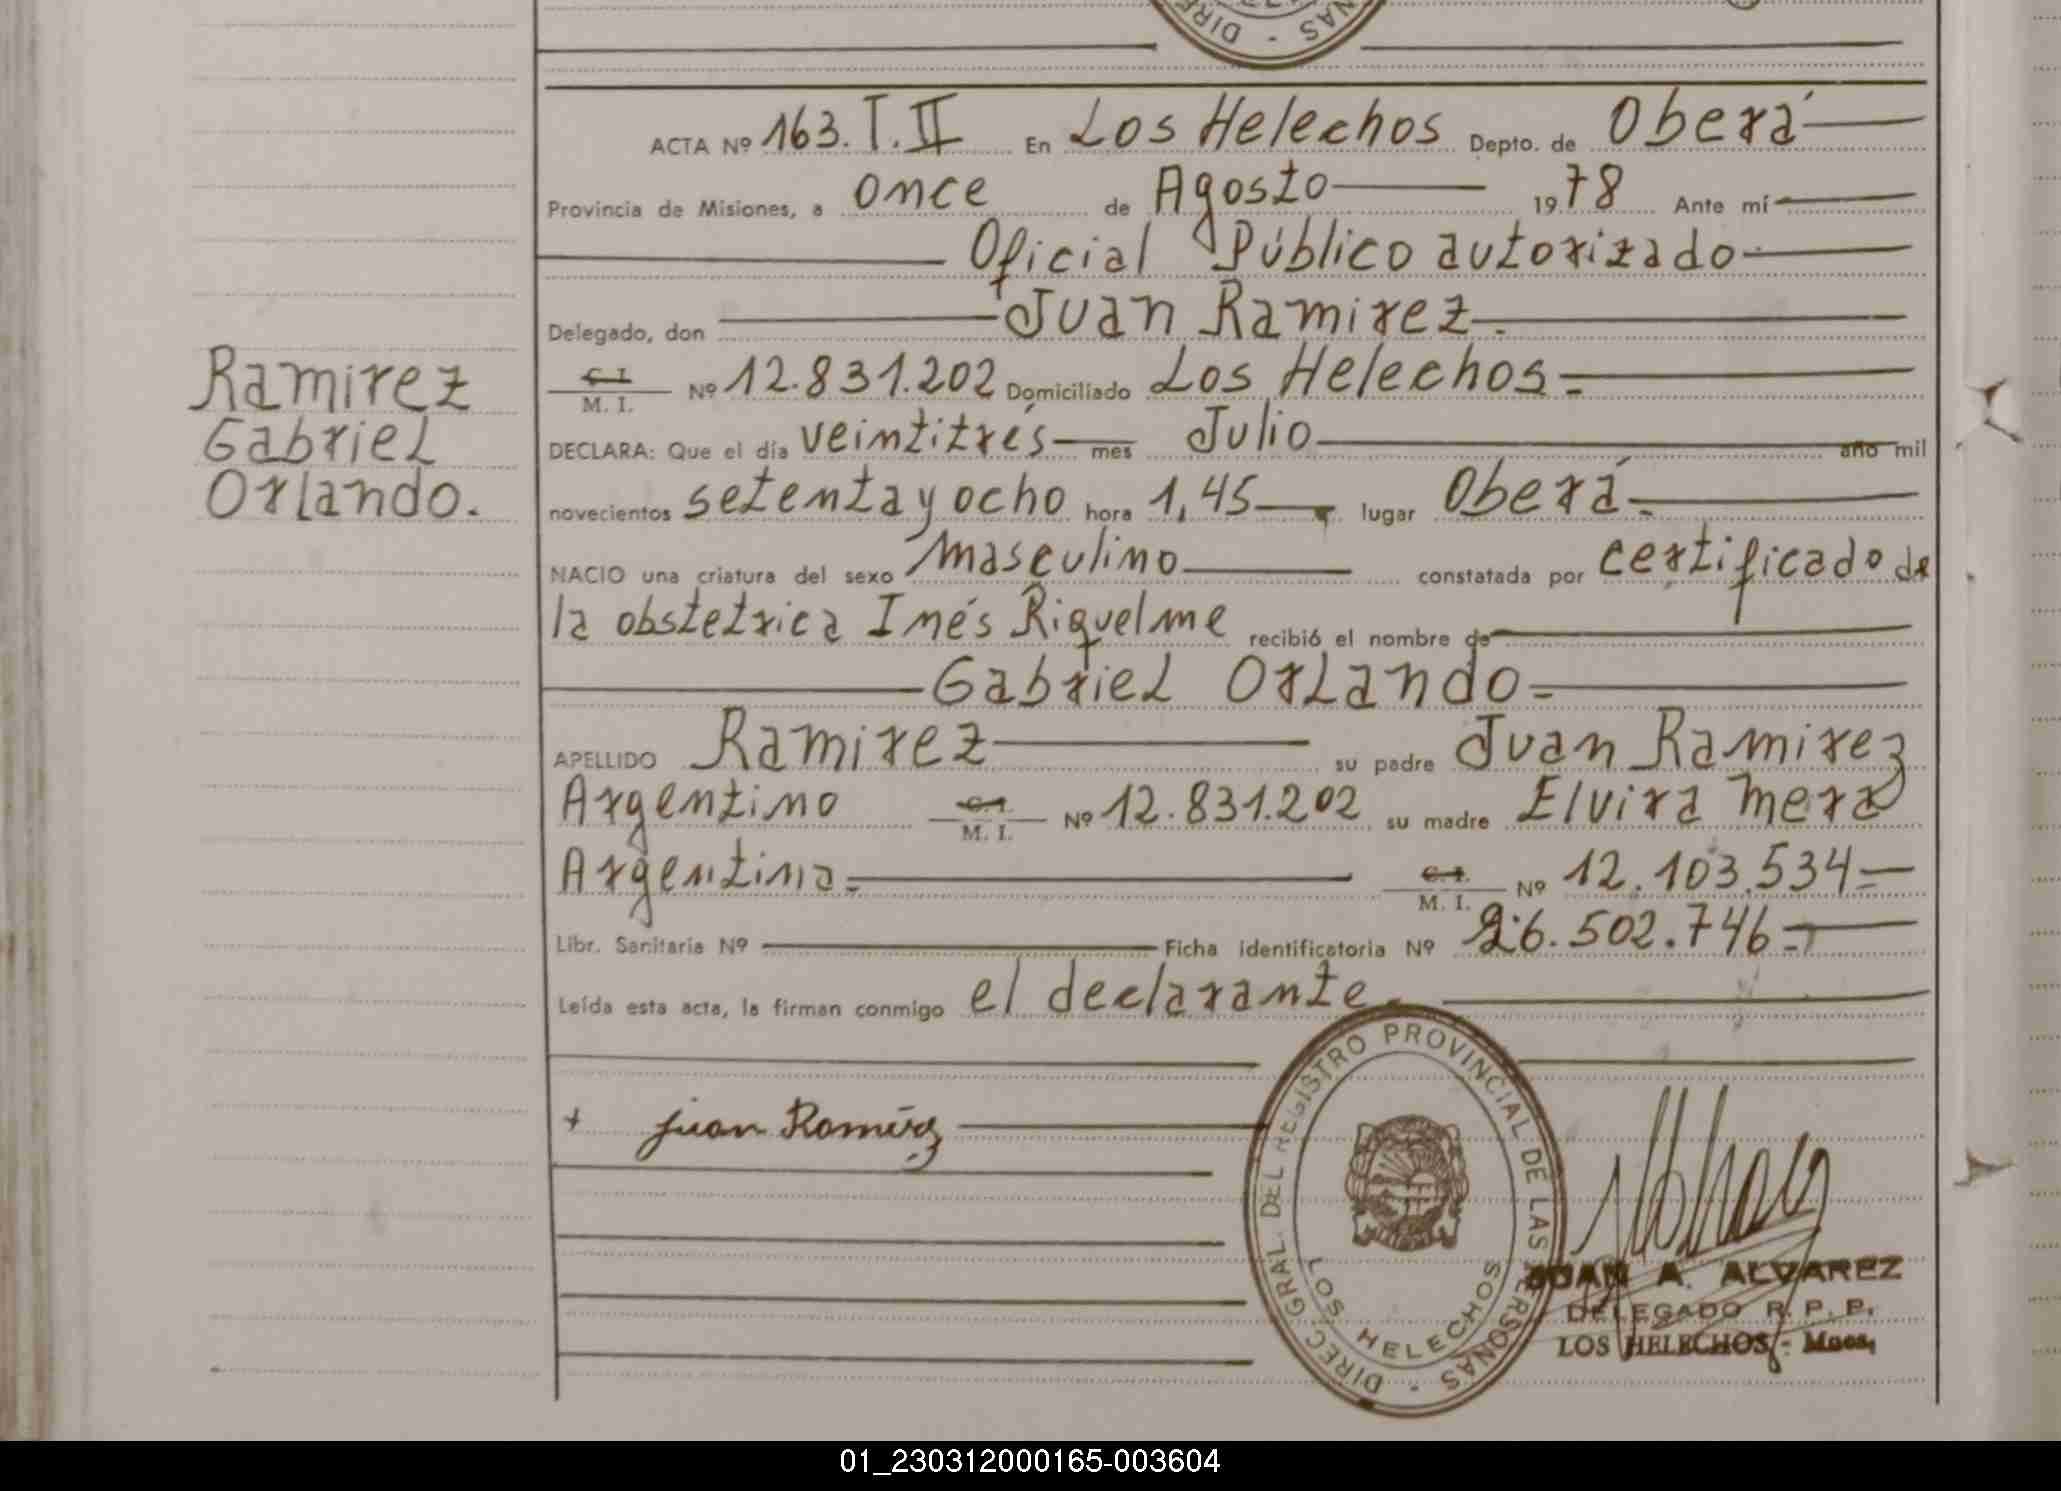 DIREC - NAS
ACTA Nº 163.T.II En Los Helechos Depto. de Oberá
Provincia de Misiones, a once de Agosto 1978 Ante mí
Oficial Público autorizado
Delegado, don Juan Ramirez.
C. I. M. I. Nº 12.831.202 Domiciliado Los Helechos=
Ramirez
Gabriel
Orlando.
DECLARA: Que el día veintitrés mes Julio año mil
novecientos setenta y ocho hora 1,45 lugar Oberá
NACIO una criatura del sexo masculino constatada por certificado de
la obstetrica Inés Riquelme recibió el nombre de
Gabriel Orlando=
APELLIDO Ramirez su padre Juan Ramirez
Argentino C. I. M. I. Nº 12.831.202 su madre Elvira Mera
Argentina C. I. M. I. Nº 12.103.534=
Libr. Sanitaria Nº Ficha identificatoria Nº 26.502.746
Leída esta acta, la firman conmigo el declarante.
+ juan Ramirez
DIREC. GRAL. DEL REGISTRO PROVINCIAL DE LAS PERSONAS -
LOS HELECHOS
JUAN A. ALVAREZ
DELEGADO R. P. P.
LOS HELECHOS - Mnes.
01_230312000165-003604